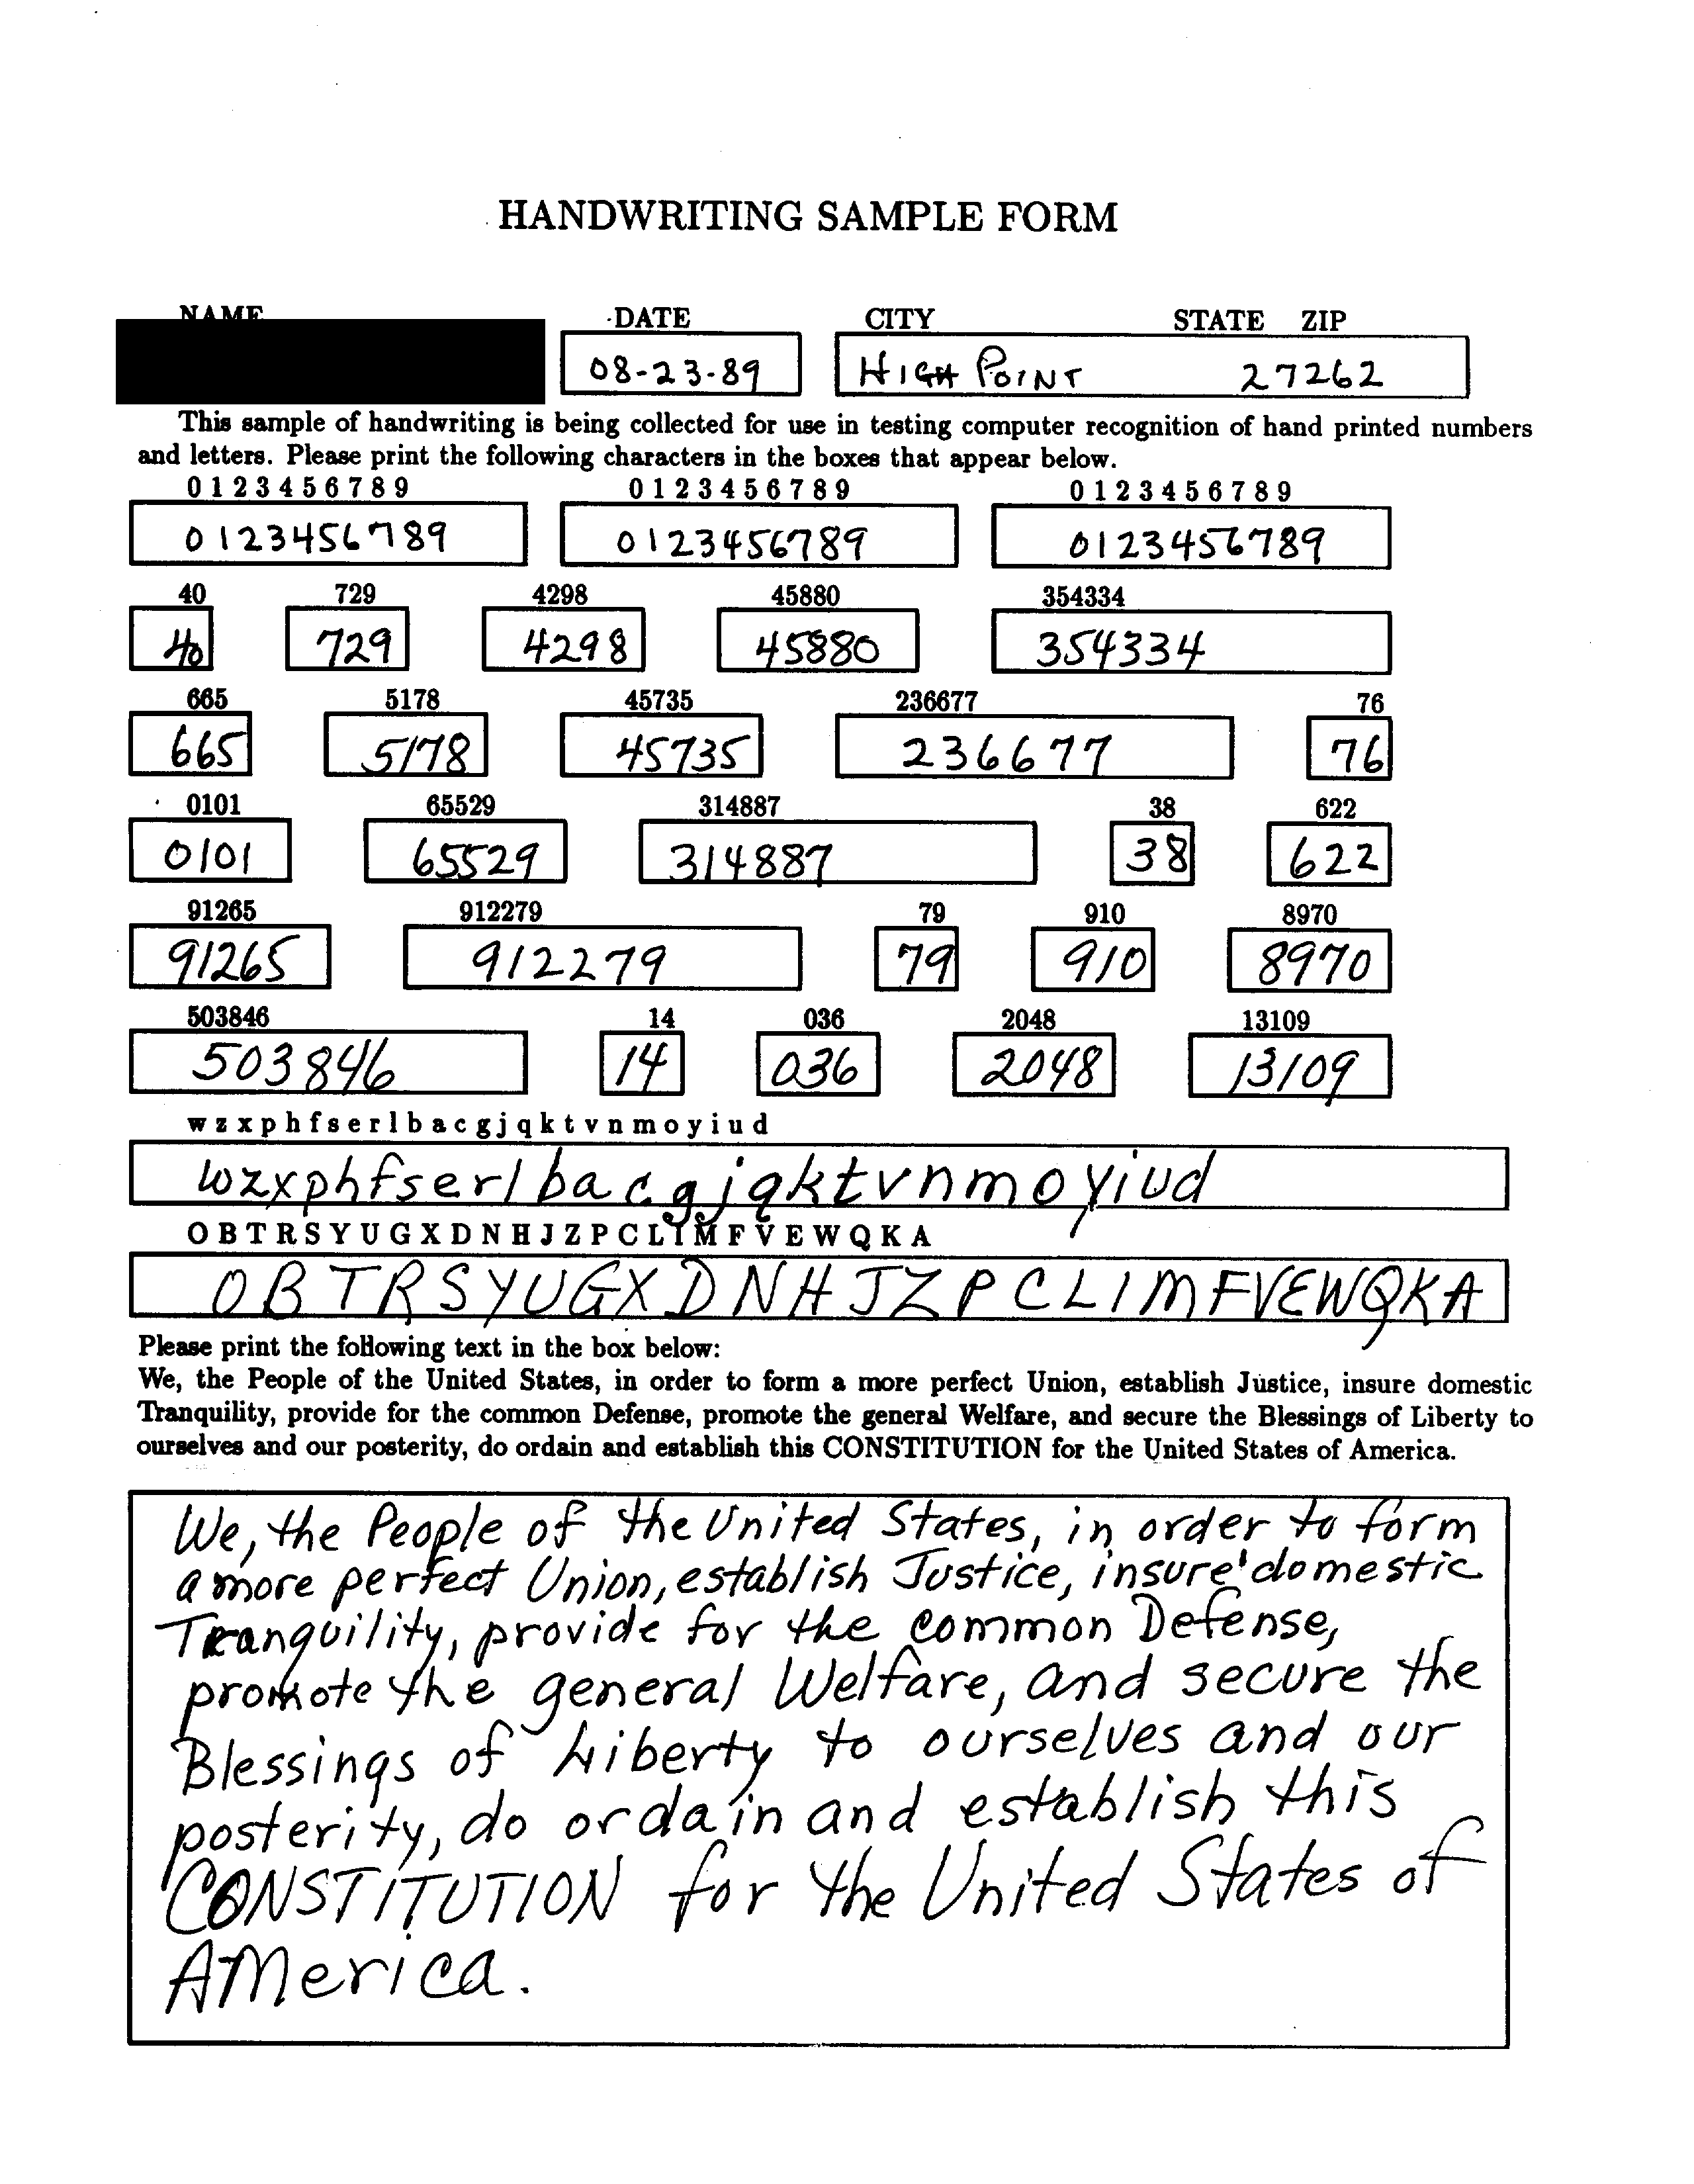 HANDWRITING SAMPLE FORM
NAME DATE CITY STATE ZIP
08-23-89 HIGH POINT 27262
This sample of handwriting is being collected for use in testing computer recognition of hand printed numbers
and letters. Please print the following characters in the boxes that appear below.
0 1 2 3 4 5 6 7 8 9 0 1 2 3 4 5 6 7 8 9 0 1 2 3 4 5 6 7 8 9
0123456789 0123456789 0123456789
40 729 4298 45880 354334
40 729 4298 45880 354334
665 5178 45735 236677 76
665 5178 45735 236677 76
0101 65529 314887 38 622
0101 65529 314887 38 622
91265 912279 79 910 8970
91265 912279 79 910 8970
503846 14 036 2048 13109
503846 14 036 2048 13109
w z x p h f s e r l b a c g j q k t v n m o y i u d
wzxphfserlbacgjqktvnmoyiud
O B T R S Y U G X D N H J Z P C L I M F V E W Q K A
OBTRSYUGXDNHJZPCLIMFVEWQKA
Please print the following text in the box below:
We, the People of the United States, in order to form a more perfect Union, establish Justice, insure domestic
Tranquility, provide for the common Defense, promote the general Welfare, and secure the Blessings of Liberty to
ourselves and our posterity, do ordain and establish this CONSTITUTION for the United States of America.
We, the People of the United States, in order to form
a more perfect Union, establish Justice, insure domestic
Tranquility, provide for the common Defense,
promote the general Welfare, and secure the
Blessings of Liberty to ourselves and our
posterity, do ordain and establish this
CONSTITUTION for the United States of
America.